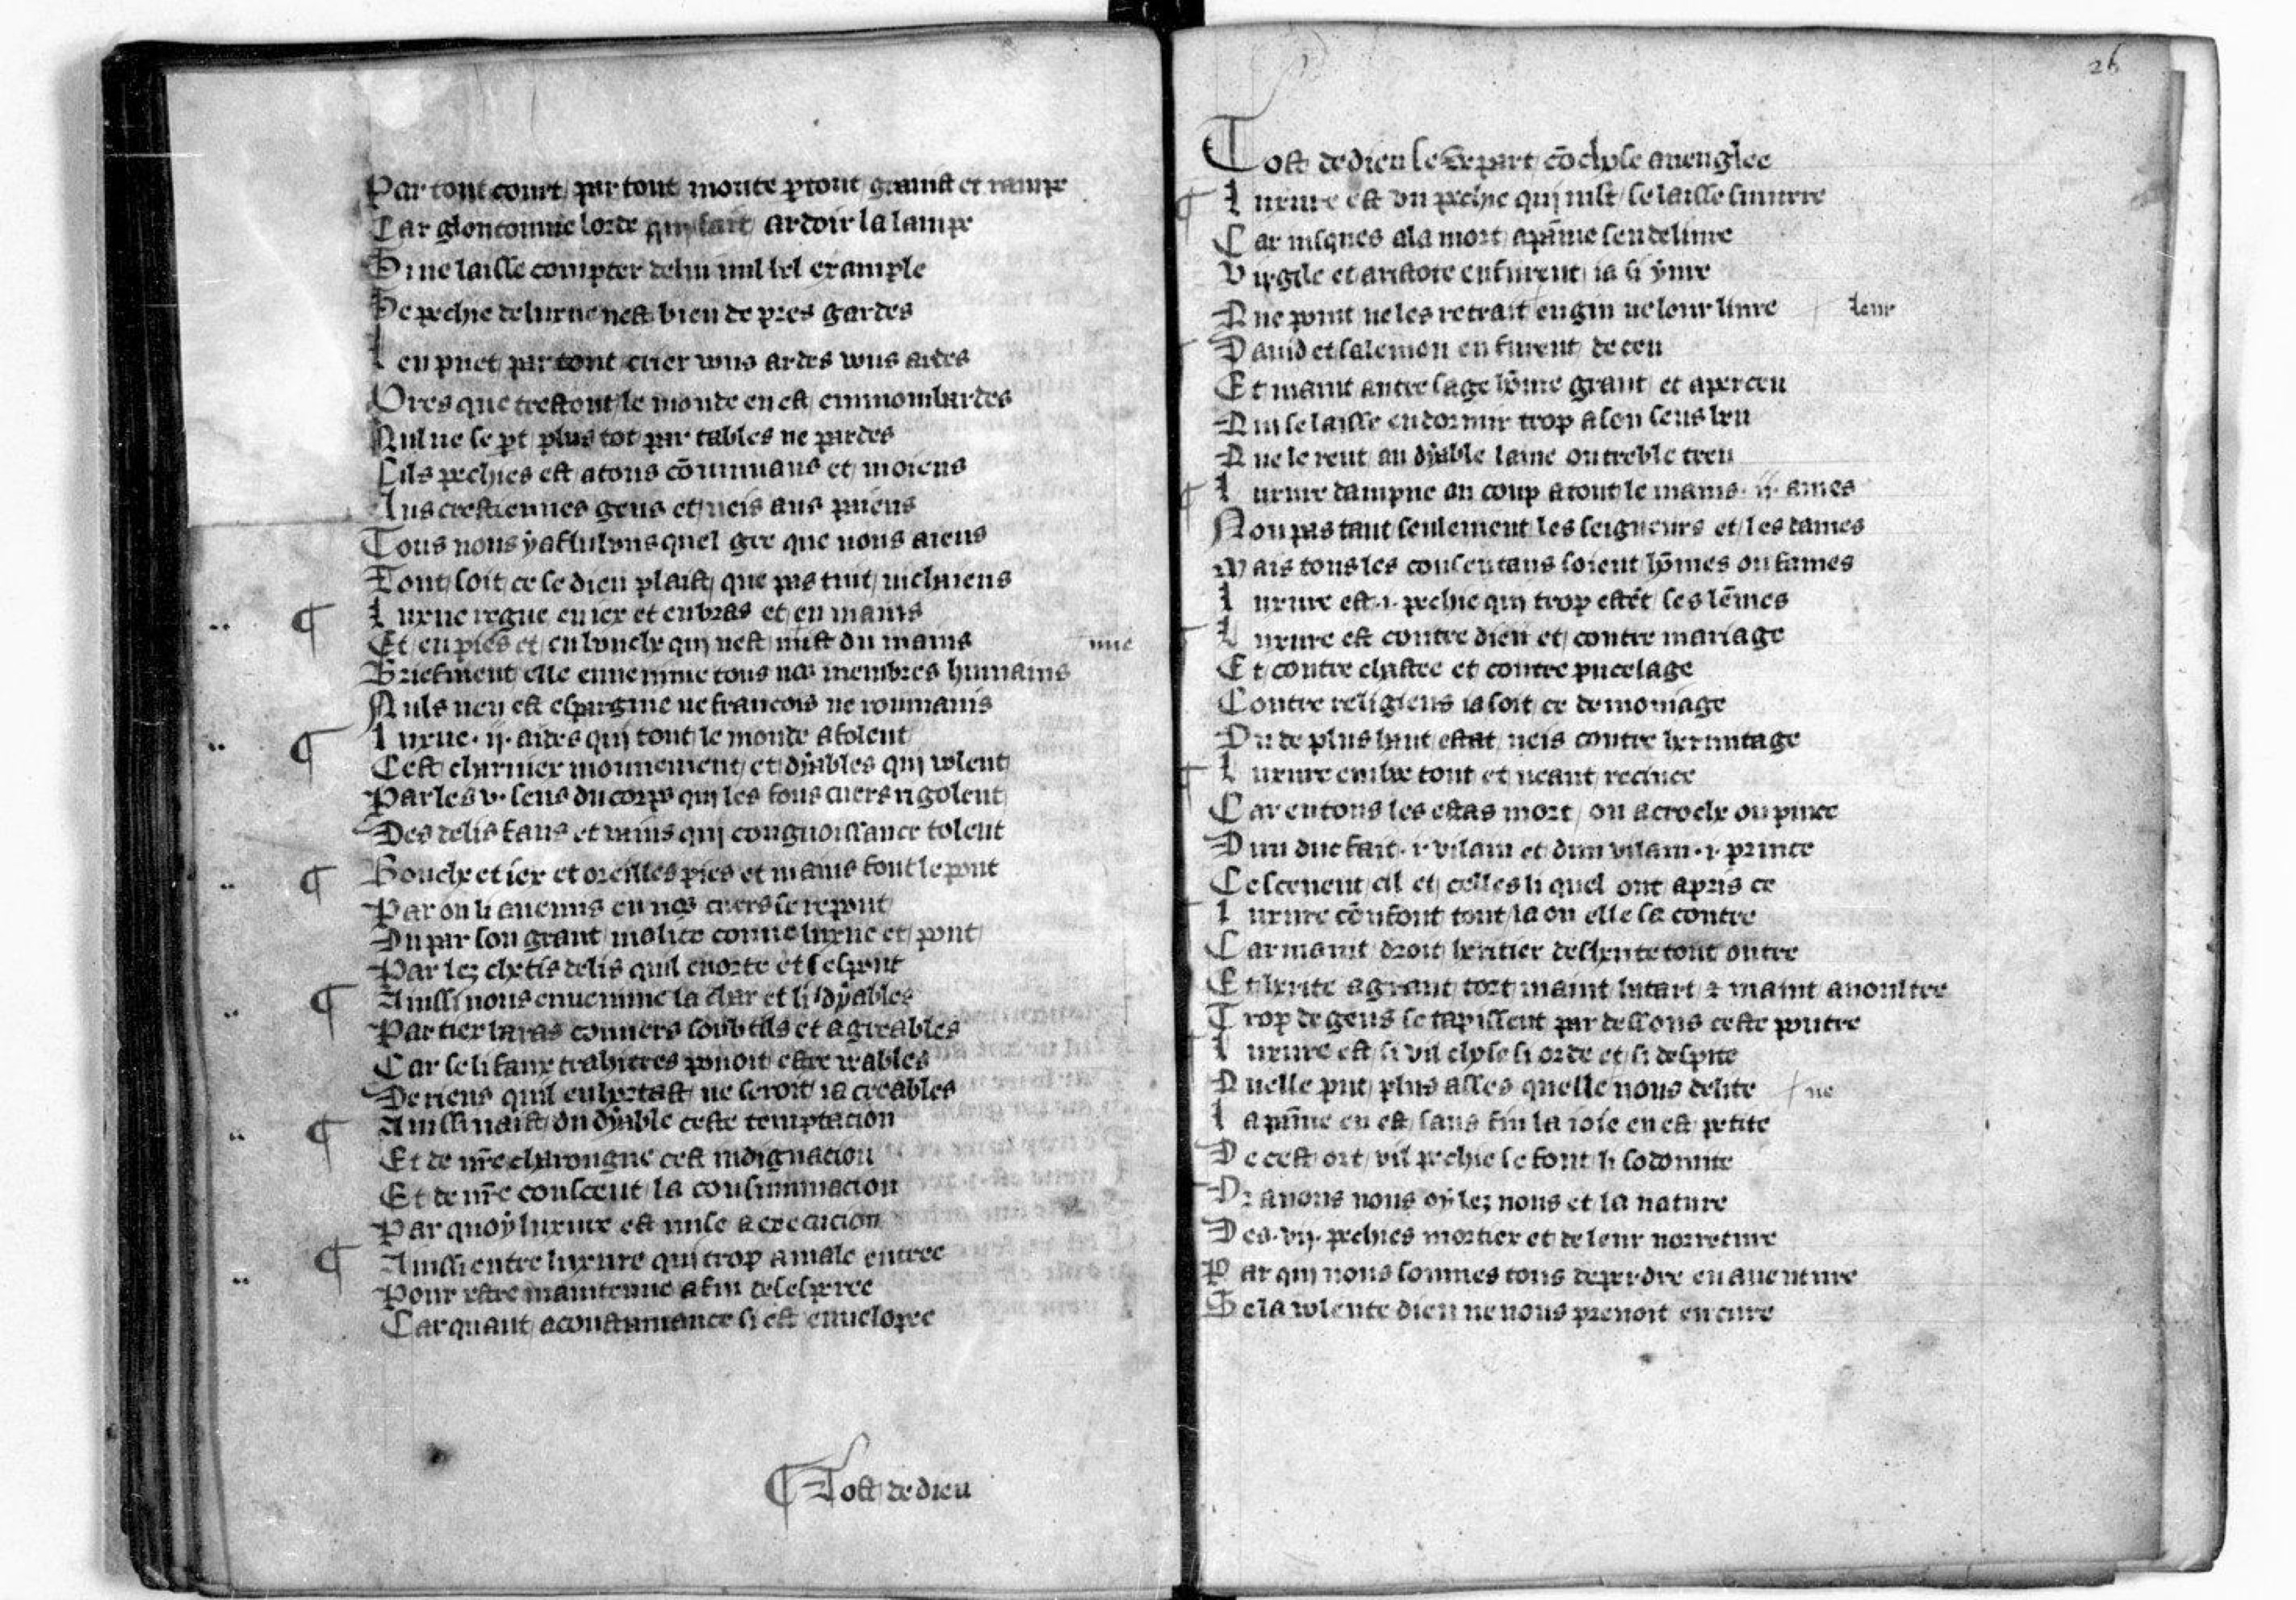 Par tout court par tout monte ꝑtout grauist et rampe
Car gloutonnie lorde qui fait ardoir la lampe
Si ne laisse compter de lui nul bel example
Se pechie de luxure nest bien de pres gardes
Len puet par tout crier vous ardes vous ardes
Ores que trestout le monde en est emmombardes
Nul ne se pt plus tot par tables ne par des
Cils pechies est a tous cōmunaus et moiens
Aus crestiennes gens et neis aus paiens
Tous nous y affulons quel gre que nous aiens
Tout soit ce se dieu plaist que pas tuit nichaiens
¶ Luxure regne en iex et en bras et en mains
Et en pies et en bouche qui nest mist du mains
mie
Briefment elle enuenime tous nos membres humains
Nuls nen est espargnie ne francois ne roumains
¶ Luxure .ij. aides qui tout le monde afolent
Cest charnier mouuement et dyables qui volent
Par les v. sens du corps qui les fous cuers rigolent
Des delis faus et vains qui congnoissance tolent
¶ Bouche et iex et oreilles pies et mains font le pont
Par ou li auenins en nos cuers se repont
Ou par son grant malice couue luxure et pont
Par lez chetis delis quil enorte et espont
¶ Aussi nous enuenime la char et li dyables
Par tier baras couuers soubtils et agreables
Car se li faux trahitres pouoit estre veables
De riens quil enhortast ne seroit ia creables
¶ Aussi naist du dyable ceste temptacion
Et de nr̄e charongne cest indignacion
Et de nr̄e consceut la consummacion
Par quoy luxure est mise a execucion
¶ Aussi entre luxure qui trop a male entree
Pour estre maintenue a fin desesperee
Car quant acoustumance si est enuelopee
¶ Tost de dieu
26
Tost de dieu se depart cō chose auenglee
¶ Luxure est un pechie qui nulz se laisse suiurre
Car iusques a la mort a pāine sen deliure
Virgile et aristote en furent ia si yure
Que point ne les retrait engin ne leur liure
leur
Dauid et salemon en furent deceu
Et maint autre sage hōme grant et aperceu
Qui se laisse endormir trop a son sens beu
Que le rent au dyable lame ou treble treu
¶ Luxure dampne au coup a tout le mains .ij. ames
Non pas tant seulement les seigneurs et les dames
Mais tous les consentans soient hōmes ou fames
Luxure est .i. pechie qui trop estēt ses lēmes
Luxure est contre dieu et contre mariage
Et contre chastee et contre pucelage
Contre religiens ia soit ce de moniage
Ou de plus haut estat neis contre hermitage
Luxure emble tout et neant recince
Car en tous les estas mort ou acroche ou pince
Dun duc fait .i. vilain et dun vilain .i. prince
Ce scevent cil et celles li quel ont apris ce
Luxure cōfont tout la ou elle sa contre
Car maint droit heritier desherite tout outre
Et herite a grant tort maint bastart ⁊ maint auoultre
Trop de gens se tapissent par dessous ceste poutre
Luxure est si vil chose si orde et si despite
Quelle put plus asses quelle nous delite
ne
La pāine en est sans fin la ioie en est petite
De cest ort vil pechie se font li sodomite
Or auons nous oy lez nous et la nature
Des .vij. pechies mortiex et de leur norreture
Par qui nous sommes tous de perdre en auenture
Se la volente dieu ne nous prenoit en cure